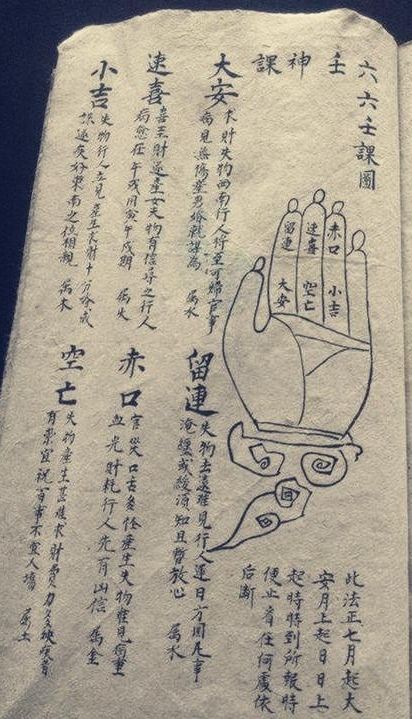 六六壬課圖
壬神課
赤口
速喜
留連
小吉
空亡
大安
大安
求財失物西南行人行至可婦官事
病見無傷產男婚就謀為 属水
速喜
喜至財運產女失物有信尋之行人
病愈在午戌用寅午戌期 属火
小吉
失物行人立見產生求財十分
疾好東南之位相親 属木
留連
失物去遠難見行人運日方回尾事
淹纏或緩須知且暫放心 属水
赤口
官災口舌多怪產生失物難見病重
血光財耗行人先有凶信 属金
空亡
失物產生甚难求財費力多缺疾者
有祟宜祝百事不宜人墳 属土
此法正七月起大
安月上起日日上
起時時到所報時
便止看在何處依
后斷